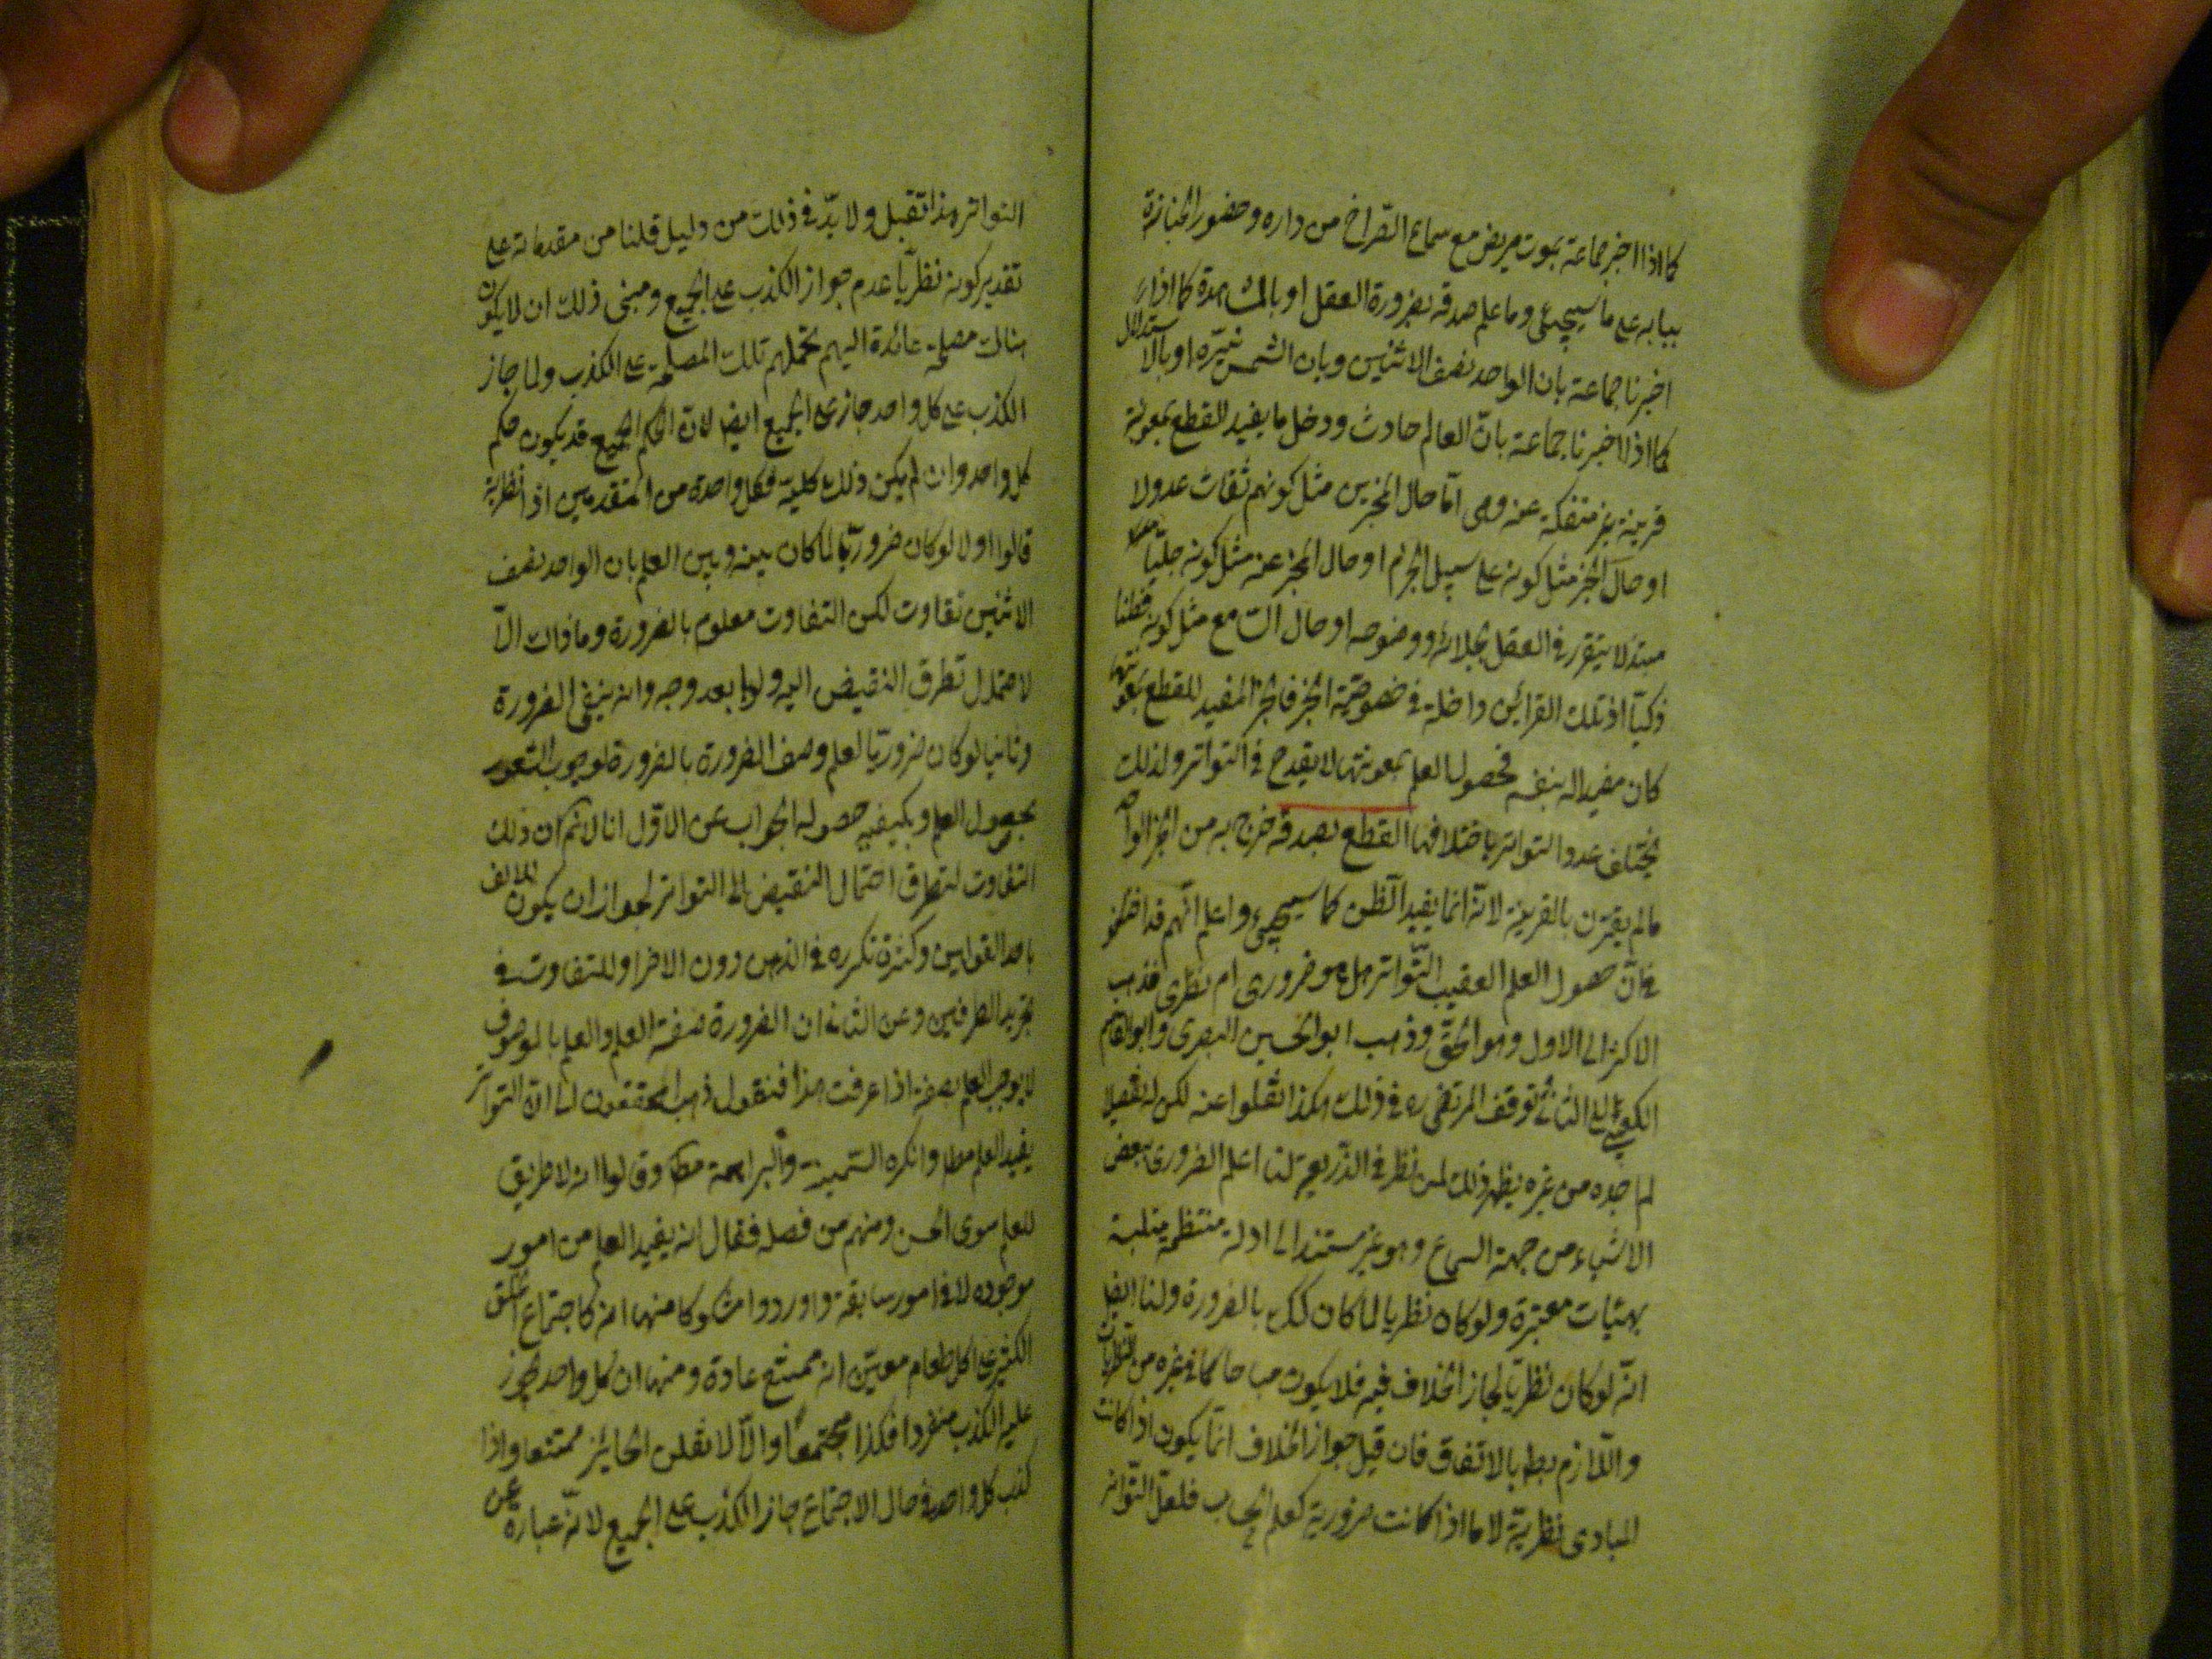 كما اذا اخبر جماعة بموت مريض مع سماع الصّراخ من داره وحضور الجنازة
ببابه على ما سيجئ وما علم صدقه بضرورة العقل او بالمشاهدة كما اذا
اخبرنا جماعة بان الواحد نصف الاثنين وبان الشمس نيّرة او بالاستدلال
كما اذا اخبرنا جماعة بانّ العالم حادث ودخل ما يفيد القطع بمعونة
قرينة غير منفكة عنه وهى امّا حال المخبرين مثل كونهم ثقات عدولا
او حال الخبر مثل كونه على سبيل الجزم او حال المخبر عنه مثل كونه جليّا
يتقرر فى العقل بجلائه ووضوحه او حال السامع مثل كونه فطنا
ذكيّا اذ تلك القرائن داخلة فى خصوصيّة الخبر فالخبر المفيد للقطع بمعونتها
كان مفيدا له بنفسه فحصول العلم بمعونتها لا يقدح فى التواتر ولذلك
يختلف عدد التواتر باختلافها القطع بصدقه خرج به من الخبر الواحد
ما لم يقترن بالقرينة لانّه انّما يفيد الظن كما سيجئ واعلم انّهم قد اختلفوا
فى انّ حصول العلم العقيب التّواتر هل هو ضرورى ام نظرى فذهب
الاكثر الى الاول وهو الحقّ وذهب ابو الحسين البصرى وابو القاسم
الكعبى الى الثانى وتوقف المرتضى ره فى ذلك هكذا نقلوا عنه لكن له تفصيلا
لم اجده من غيره يظهر ذلك لمن نظر فى الذّريعة لنا اعلم الضرورى ببعض
الاشياء من جهة السماع وهو غير مستند الى ادلة منتظمة
بهيئات معتبرة ولو كان نظريا لما كان كك بالضرورة ولنا ايضا
انّه لو كان نظريّا لجاز الخلاف فيه فلا يكون كما فى غيره من النظريات
واللّازم بط بالاتفاق فان قيل جواز الخلاف انّما يكون اذا كانت
المبادى نظريّة لا ما اذا كانت ضرورية كعلم الحساب فلعلّ التّواتر
التواتر هذا القبيل ولا بدّ فى ذلك من دليل قلنا من مقدماته على
تقدير كونه نظريّا عدم جواز الكذب على الجميع ومبنى ذلك ان لا يكون
هناك مصلحة عائدة اليهم تحملهم تلك المصلحة على الكذب ولما جاز
الكذب على كل واحد جاز على الجميع ايضا لانّ الحكم الجميع قد يكون حكم
كل واحد وان لم يكن ذلك كلية فكل واحدة من المتقدمين اذا نظرية
قالوا اولا لو كان ضروريّا لما كان بينه وبين العلم بان الواحد نصف
الاثنين تفاوت لكن التفاوت معلوم بالضرورة وما ذاك الّا
لاحتمال تطرق النقيض اليه ولو ابعد وجه وانه ينفى الضرورة
وثانيا لو كان ضروريّا لعلم وصف الضرورة بالضرورة لوجوب الشعور
بحصول العلم وبكيفيه حصوله الجواب عن الاوّل انا لا نم ان ذلك
التفاوت لتطرق احتمال النقيض الى التواتر لجواز ان يكون للالف
باحد القولين وكثرة تكرره فى الذهن دون الاخر او للتفاوت فى
تجريد الطرفين وعن الثانى ان الضرورة صفة العلم والعلم بالموصوف
لا يوجب العلم بصفته اذا عرفت هذا فنقول ذهب المحققون الى انّ التواتر
يفيد العلم مطلقا وانكره السّمنية والبراهمة مط وقالوا انه لا طريق
للعلم سوى الحس ومنهم من فصل فقال انه يفيد العلم من امور
موجوده لا فى امور سابقة واوردوا شكوكا منها انه كاجتماع الخلق
الكثير على اكل طعام معيّن انه ممتنع عادة ومنها ان كل واحد يجوز
عليه الكذب منفردا فكذا مجتمعًا والّا لانقلب الجايز ممتنعا واذا
كذب كل واحد فى حال الاجتماع جاز الكذب على الجميع لانّه عبارة عن